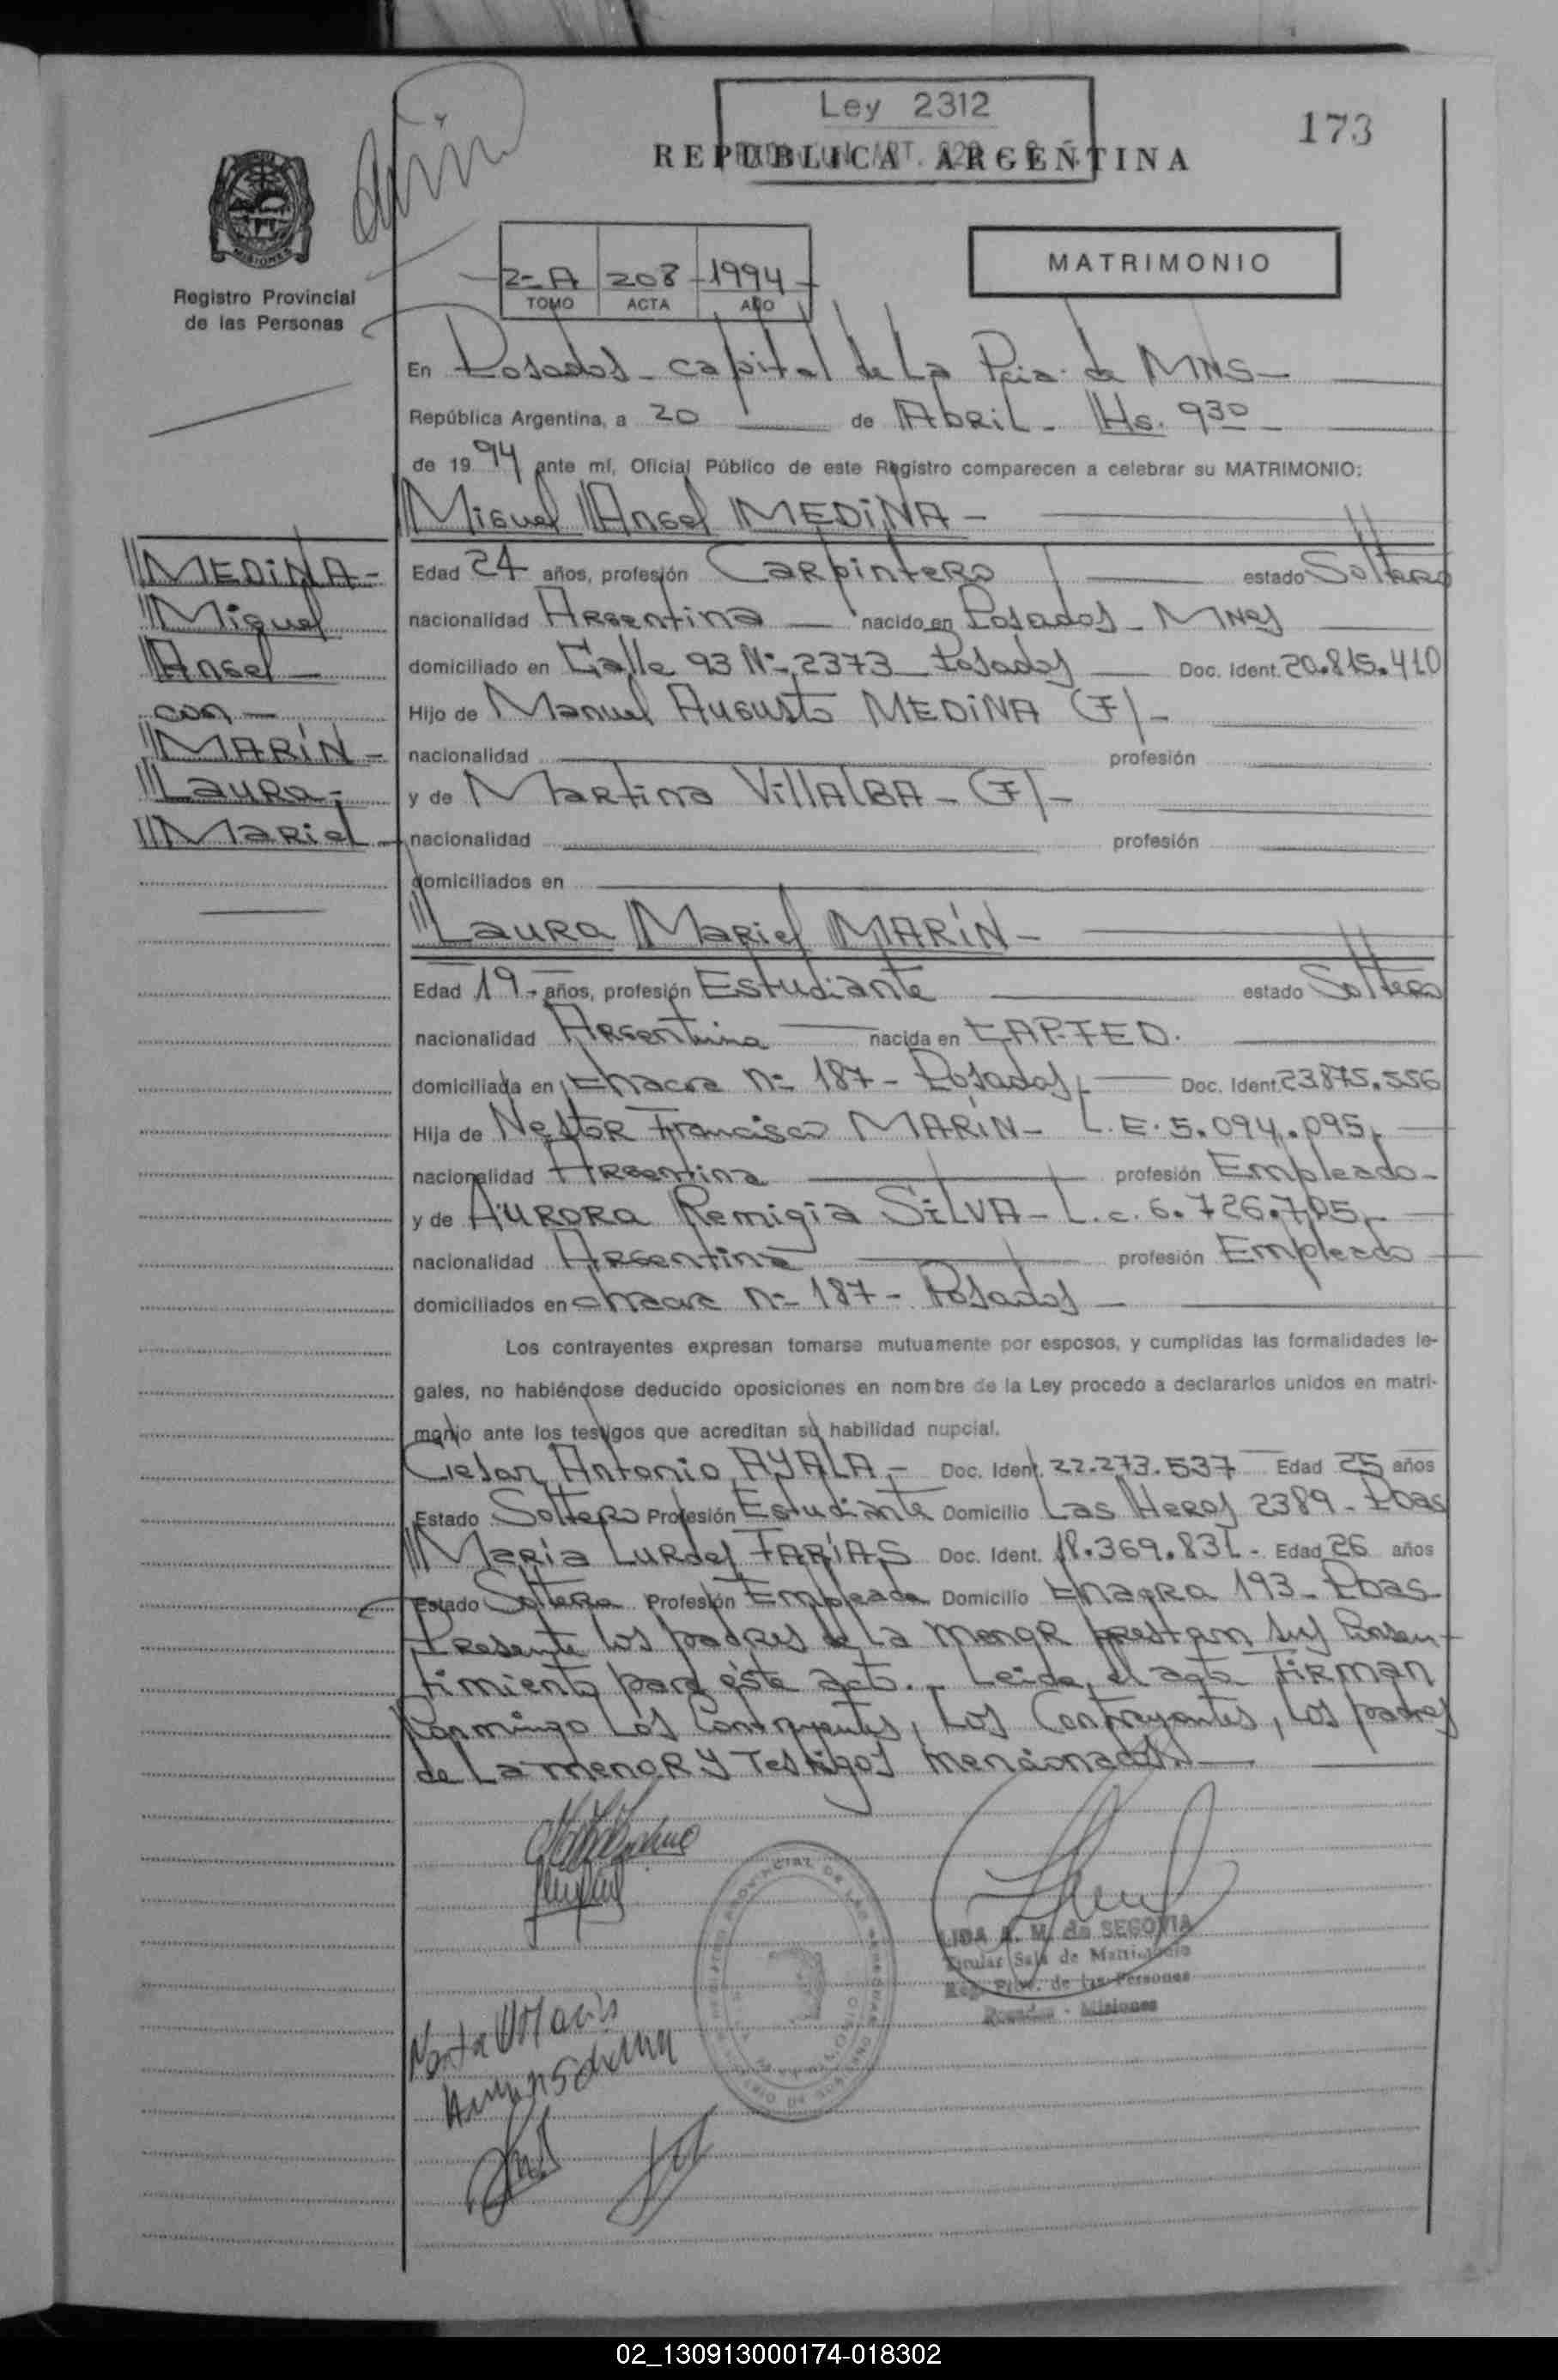 Ley 2312
173
REPUBLICA ARGENTINA
MISIONES
Registro Provincial
de las Personas
2-A 208 1994
TOMO ACTA AÑO
MATRIMONIO
En Posadas - capital de La Pcia. de MNS -
República Argentina, a 20 de Abril - Hs. 9 30
de 19 94 ante mí, Oficial Público de este Registro comparecen a celebrar su MATRIMONIO:
Miguel Angel MEDINA -
MEDINA -
Miguel
Angel -
con -
MARÍN -
Laura -
Mariel
Edad 24 años, profesión Carpintero estado Soltero
nacionalidad Argentina nacido en Posadas - Mnes
domiciliado en Calle 93 Nº 2373 - Posadas Doc. Ident. 20.815.410
Hijo de Manuel Augusto MEDINA (F) -
nacionalidad profesión
y de Martina VillALBA - (F) -
nacionalidad profesión
domiciliados en
Laura Mariel MARÍN -
Edad 19 - años, profesión Estudiante estado Soltera
nacionalidad Argentina nacida en CAP. FED.
domiciliada en Chacra Nº 187 - Posadas Doc. Ident. 23875.556
Hija de Nestor Francisco MARIN - L.E. 5.094.095,-
nacionalidad Argentina profesión Empleado -
y de AURORA Remigia SILVA - L.c. 6.726.705,-
nacionalidad Argentina profesión Empleado
domiciliados en chacra Nº 187 - Posadas
Los contrayentes expresan tomarse mutuamente por esposos, y cumplidas las formalidades le-
gales, no habiéndose deducido oposiciones en nombre de la Ley procedo a declararlos unidos en matri-
monio ante los testigos que acreditan su habilidad nupcial.
Cesar Antonio AYALA - Doc. Ident. 22.273.537 Edad 25 años
Estado Soltero Profesión Estudiante Domicilio Las Heras 2389 - Pdas
María Lurdes FARÍAS Doc. Ident. 18.369.831 - Edad 26 años
Estado Soltera Profesión Empleada Domicilio Chacra 193 - Pdas
Presente los padres de La menor prestan sus Consen-
timiento para éste acto. - Leida el acta FIRMAN
Conmingo Los Contrayentes, Los Contrayentes, Los padres
de La menor y Testigos mencionados
LIDA A. M. de SEGOVIA
Titular Sala de Matrimonio
Reg. Prov. de las Personas
Posadas - Misiones
02_130913000174-018302